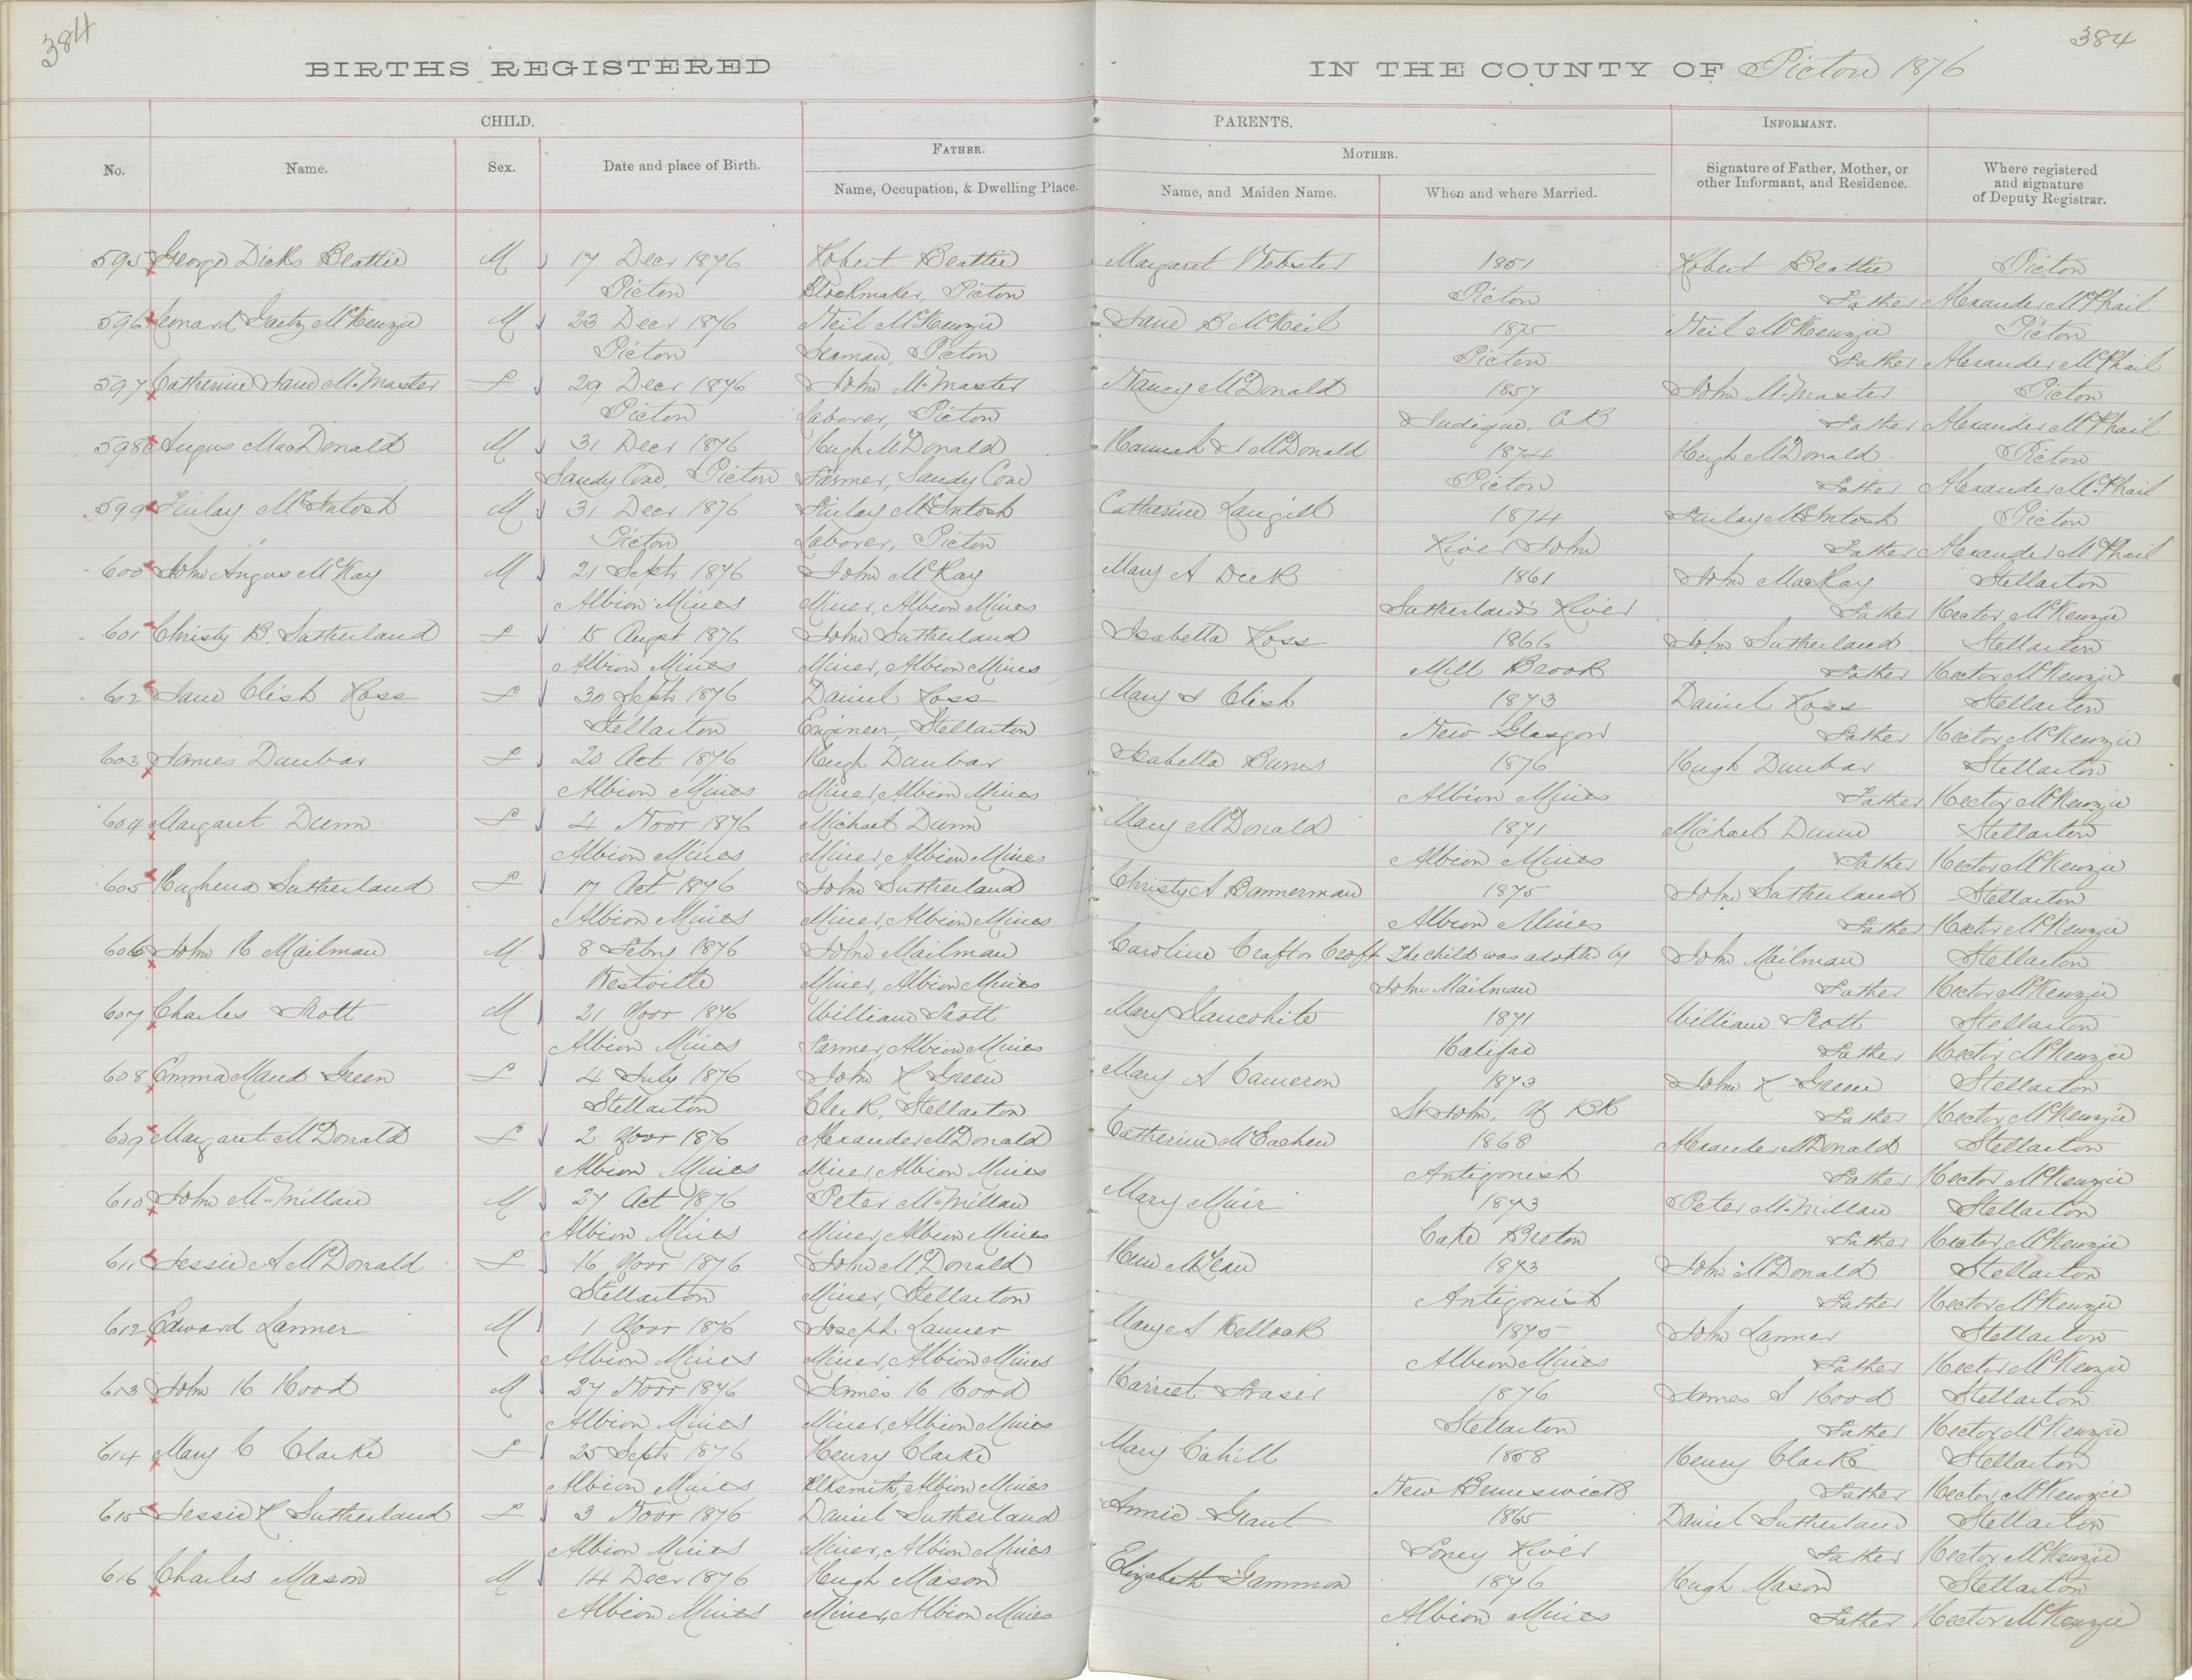 384
384
BIRTHS REGISTERED IN THE COUNTY OF Picton 1876
CHILD. PARENTS. INFORMANT.
FATHER. MOTHER.
No. Name. Sex. Date and place of Birth. Name, Occupation, & Dwelling Place. Name, and Maiden Name. When and where Married. Signature of Father, Mother, or other Informant, and Residence. Where registered and signature of Deputy Registrar.
595 George Dicks Beattie M 17 Decr 1876 Robert Beattie Margaret Webster 1851 Robert Beattie Picton
Picton Blockmaker, Picton Picton Father Alexander McPhail
596 Leonard Gaetz McKenzie M 23 Decr 1876 Neil McKenzie Jane B McNeil 1875 Neil McKenzie Picton
Picton Seaman, Picton Picton Father Alexander McPhail
597 Catherine Jane McMaster F 29 Decr 1876 John McMaster Nancy McDonald 1857 John McMaster Picton
Picton Laborer, Picton Judique, CB Father Alexander McPhail
598 Angus MacDonald M 31 Decr 1876 Hugh McDonald Hannah J McDonald 1874 Hugh McDonald Picton
Sandy Cove, Picton Farmer, Sandy Cove Picton Father Alexander McPhail
599 Finlay McIntosh M 31 Decr 1876 Finlay McIntosh Catherine Langill 1874 Finlay McIntosh Picton
Picton Laborer, Picton River John Father Alexander McPhail
600 John Angus McKay M 21 Sept 1876 John McKay Mary A Dick 1861 John MacKay Stellarton
Albion Mines Miner, Albion Mines Sutherland's River Father Hector McKenzie
601 Christy B. Sutherland F 15 Augst 1876 John Sutherland Isabella Ross 1866 John Sutherland Stellarton
Albion Mines Miner, Albion Mines Mill Brook Father Hector McKenzie
602 Jane Clish Ross F 30 Sept 1876 Daniel Ross Mary J Clish 1873 Daniel Ross Stellarton
Stellarton Engineer, Stellarton New Glasgow Father Hector McKenzie
603 James Dunbar F 20 Oct 1876 Hugh Dunbar Isabella Burns 1876 Hugh Dunbar Stellarton
Albion Mines Miner, Albion Mines Albion Mines Father Hector McKenzie
604 Margaret Dunn F 4 Novr 1876 Michael Dunn Mary McDonald 1871 Michael Dunn Stellarton
Albion Mines Miner, Albion Mines Albion Mines Father Hector McKenzie
605 Hughena Sutherland F 17 Oct 1876 John Sutherland Christy A Bannerman 1875 John Sutherland Stellarton
Albion Mines Miner, Albion Mines Albion Mines Father Hector McKenzie
606 John H Mailman M 8 Febry 1876 John Mailman Caroline Craft or Croft The child was adopted by John Mailman Stellarton
Westville Miner, Albion Mines John Mailman Father Hector McKenzie
607 Charles Scott M 21 Novr 1876 William Scott Mary 1871 William Scott Stellarton
Albion Mines Farmer, Albion Mines Halifax Father Hector McKenzie
608 Emma Maud Green F 4 July 1876 John R Green Mary A Cameron 1873 John R Green Stellarton
Stellarton Clerk, Stellarton St John, Father Hector McKenzie
609 Margaret McDonald F 2 Novr 1876 Alexander McDonald Catherine McEachen 1868 Alexander McDonald Stellarton
Albion Mines Miner, Albion Mines Antigonish Father Hector McKenzie
610 John McMillan M 27 Oct 1876 Peter McMillan Mary Muir 1873 Peter McMillan Stellarton
Albion Mines Miner, Albion Mines Cape Breton Father Hector McKenzie
611 Jessie A McDonald F 16 Novr 1876 John McDonald McLean 1873 John McDonald Stellarton
Stellarton Miner, Stellarton Antigonish Father Hector McKenzie
612 Edward Lanner M 1 Novr 1876 Joseph Lanner Mary A Kellock 1875 John Lanner Stellarton
Albion Mines Miner, Albion Mines Albion Mines Father Hector McKenzie
613 John H Hood M 27 Novr 1876 James H Hood Harriet Fraser 1876 James S Hood Stellarton
Albion Mines Miner, Albion Mines Stellarton Father Hector McKenzie
614 Mary C Clarke F 25 Sept 1876 Henry Clarke Mary Cahill 1858 Henry Clarke Stellarton
Albion Mines Blksmith, Albion Mines New Brunswick Father Hector McKenzie
615 Jessie R Sutherland F 3 Novr 1876 Daniel Sutherland Annie Grant 1865 Daniel Sutherland Stellarton
Albion Mines Miner, Albion Mines River Father Hector McKenzie
616 Charles Mason M 14 Decr 1876 Hugh Mason Elizabeth Gammon 1876 Hugh Mason Stellarton
Albion Mines Miner, Albion Mines Albion Mines Father Hector McKenzie